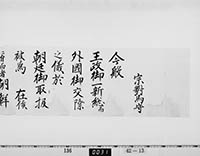 宗對馬守
今般
王政御一新總テ
外國御交際
之儀於
朝廷御取扱
被爲 在候
朝鮮
136
0031
42-13